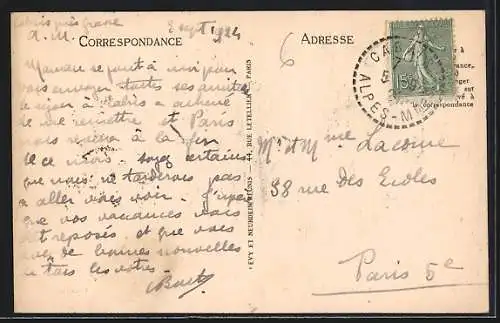 Cabris près grasse
A. M.
8 sept 1924
CORRESPONDANCE
Maman se joint à moi pour
vous envoyer toutes ses amitiés
le séjour à Cabris a achevé
de me remettre et Paris
nous reverra à la fin
de ce mois. Soyez certains
que nous ne tarderons pas
à aller vous voir. J'espère
que vos vacances vous
ont reposés, et que vous
avez de bonnes nouvelles
de tous les vôtres.
LEVY ET NEURDEIN RÉUNIS, 44, RUE LETELLIER, PARIS
6
ADRESSE
CAB
ALPES-M
15
la correspondance
M. et Mme Lacome
38 rue des Ecoles
Paris 5e